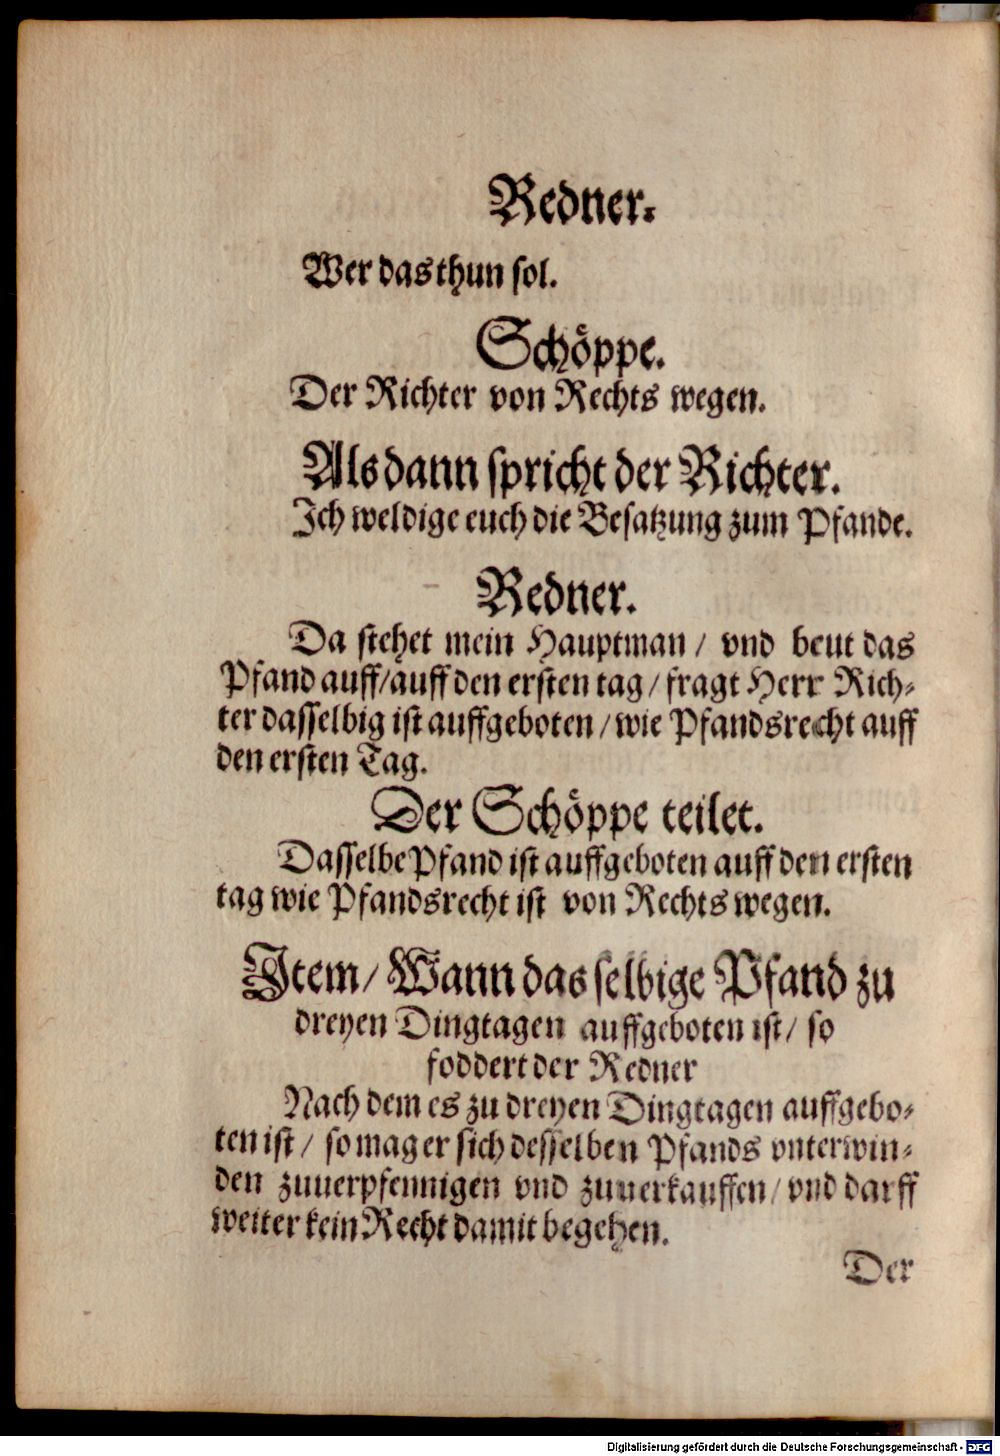 Redner.
Wer das thun sol.
Schöppe.
Der Richter von Rechts wegen.
Als dann spricht der Richter.
Ich weldige euch die Besatzung zum Pfande.
Redner.
Da stehet mein Hauptman / vnd beut das
Pfand auff/auff den ersten tag / fragt Herr Rich-
ter dasselbig ist auffgeboten / wie Pfandsrecht auff
den ersten Tag.
Der Schöppe teilet.
Dasselbe Pfand ist auffgeboten auff den ersten
tag wie Pfandsrecht ist von Rechts wegen.
Item / Wann das selbige Pfand zu
dreyen Dingtagen auffgeboten ist / so
foddert der Redner
Nach dem es zu dreyen Dingtagen auffgebo-
ten ist / so mag er sich desselben Pfands vnterwin-
den zuuerpfennigen vnd zuuerkauffen / vnd darff
weiter kein Recht damit begehen.
Der
Digitalisierung gefördert durch die Deutsche Forschungsgemeinschaft - DFG